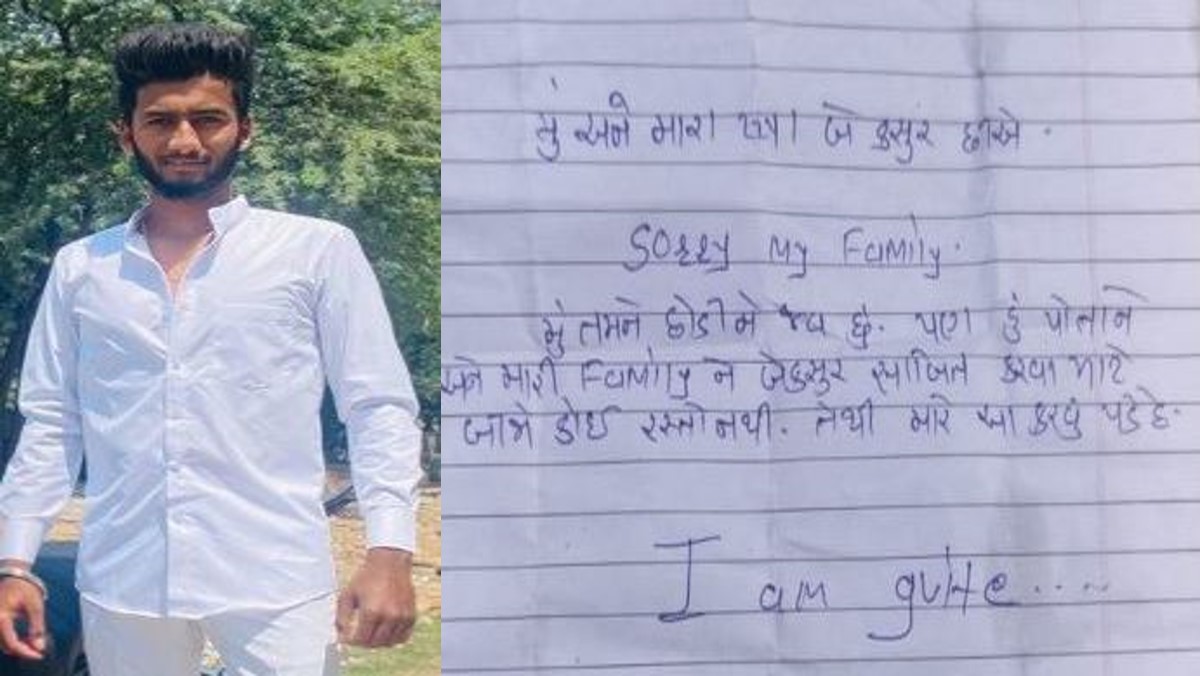 મું અને મારા પપ્પા બે કસુર છીએ .
Sorry my Family.
મું તમને છોડીને જવ છું. પણ હું પોતાને
અને મારી Family ને બેકસુર સાબિત કરવા માટે
બીજો કોઈ રસ્તો નથી. તેથી મારે આ કરવું પડે છે.
I am quite.....